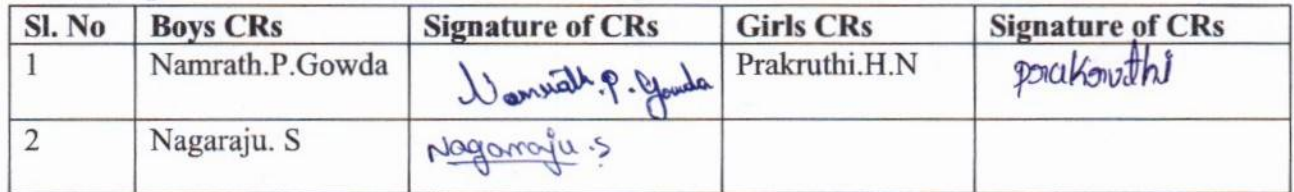 Sl. No Boys CRs Signature of CRs Girls CRs Signature of CRs
1 Namrath.P.Gowda Namrath.P.Gowda Prakruthi.H.N prakruthi
2 Nagaraju. S Nagarraju.S